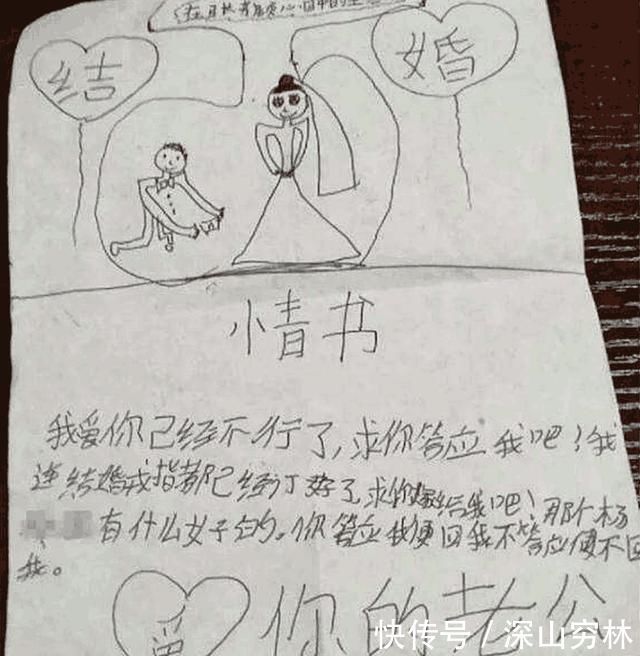 结 婚
情书
我爱你已经不行了,求你答应我吧!我
连结婚戒指都已经订好了,求你嫁给我吧!那个杨
有什么好的。你答应我便回我不答应便不回
我。
爱 你的老公
快传号 / 深山穷林